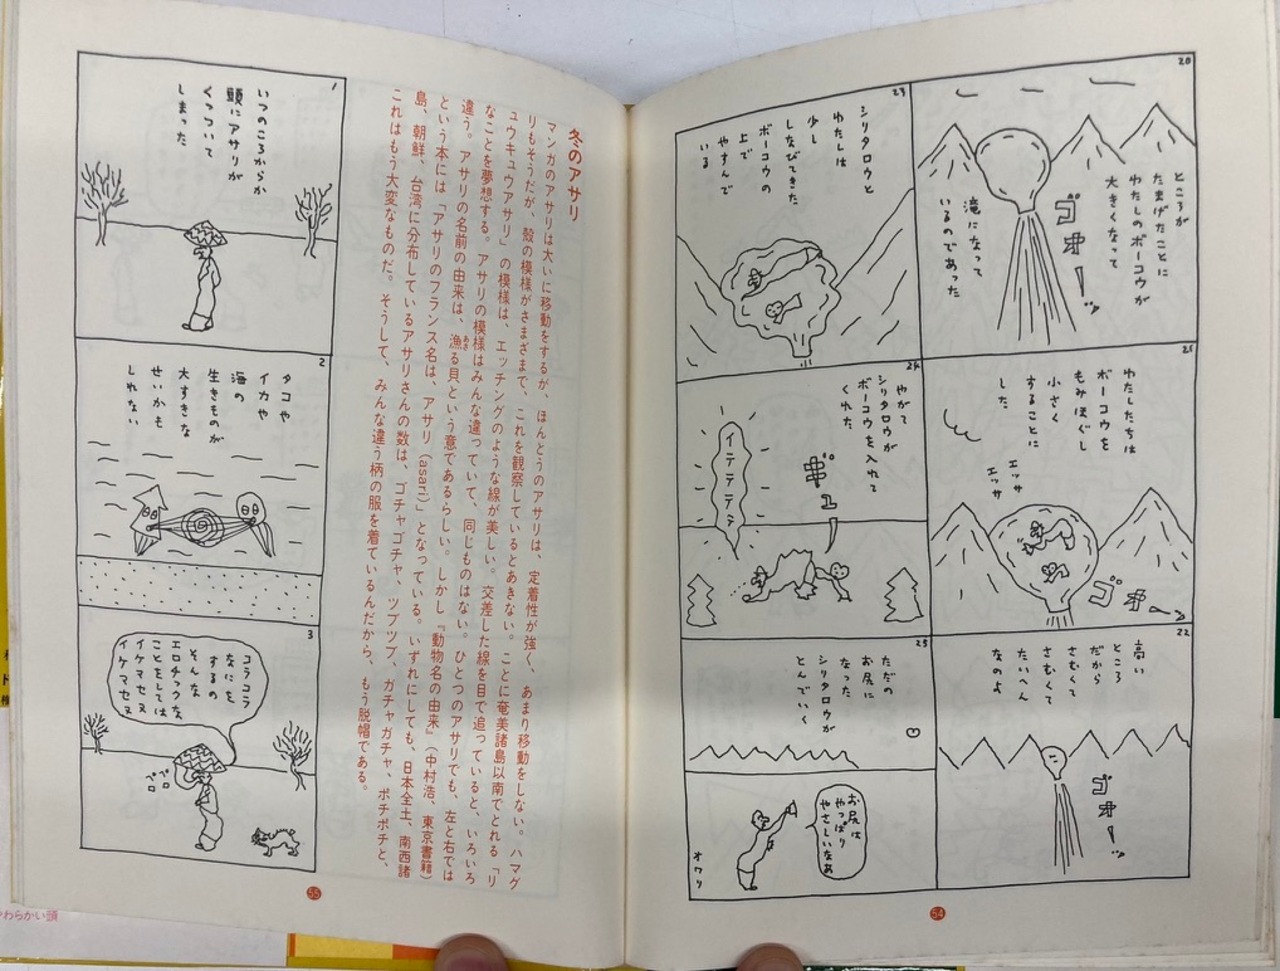 20
ところが
たまげたことに
わたしのボーコウが
大きくなって
ゴォーーッ
滝になって
いるのであった
21
わたしたちは
ボーコウを
もみほぐし
小さく
することに
した
エッサ
エッサ
ゴォーッ
22
高い
ところ
だから
さむくて
さむくて
たいへん
なのよ
ゴォーーッ
23
シリタロウと
わたしは
少し
しなびてきた
ボーコウの
上で
やすんで
いる
24
やがて
シリタロウが
ボーコウを入れて
くれた
ギュー
イテテテテ
25
ただの
お尻に
なった
シリタロウが
とんでいく
お尻は
やっぱり
やさしいなあ
オワリ
54
冬のアサリ
マンガのアサリは大いに移動をするが、ほんとうのアサリは、定着性が強く、あまり移動をしない。ハマグ
リもそうだが、殻の模様がさまざまで、これを観察しているとあきない。ことに奄美諸島以南でとれる「リ
ュウキュウアサリ」の模様は、エッチングのような線が美しい。交差した線を目で追っていると、いろいろ
なことを夢想する。アサリの模様はみんな違っていて、同じものはない。ひとつのアサリでも、左と右では
違う。アサリの名前の由来は、漁る貝という意であるらしい。しかし『動物名の由来』（中村浩、東京書籍）
あさ
という本には「アサリのフランス名は、アサリ（asari）」となっている。いずれにしても、日本全土、南西諸
島、朝鮮、台湾に分布しているアサリさんの数は、ゴチャゴチャ、ツブツブ、ガチャガチャ、ポチポチと、
これはもう大変なものだ。そうして、みんな違う柄の服を着ているんだから、もう脱帽である。
1
いつのころからか
頭にアサリが
くっついて
しまった
2
タコや
イカや
海の
生きものが
大すきな
せいかも
しれない
3
コラコラ
なにを
するの
そんな
エロチックな
ことをしては
イケマセヌ
イケマセヌ
ペロ
ペロ
55
やわらかい頭